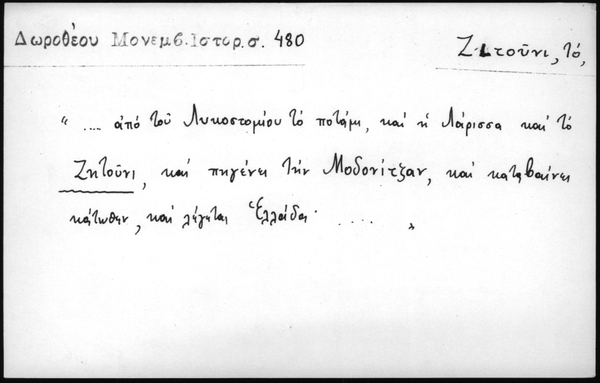 Δωροθέου Μονεμβ. Ιστορ. σ. 480
Ζιτοῦνι, τό,
“ .... ἀπό τοῦ Λυκοστομίου τό ποτάμι, καί ἡ Λάρισσα καί τό
Ζητοῦνι, καί πηγένει τήν Μοδονίτζαν, καί καταβαίνει
κάτωθεν, καί λέγεται Ἑλλάδα· .... „